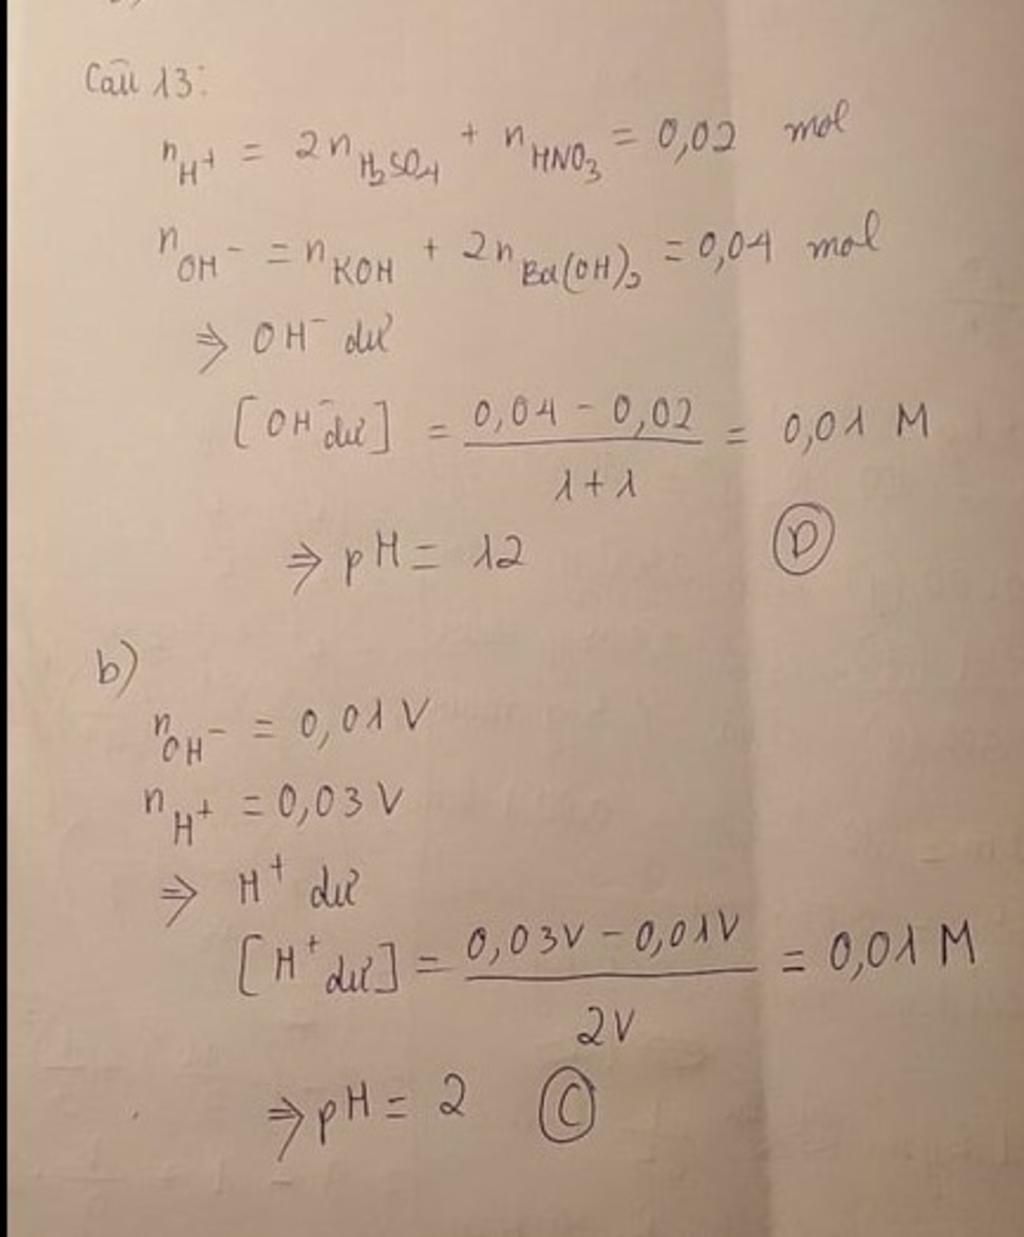 Câu 13:
n_H⁺ = 2n_H₂SO₄ + n_HNO₃ = 0,02 mol
n_OH⁻ = n_KOH + 2n_Ba(OH)₂ = 0,04 mol
⇒ OH⁻ dư
[OH⁻ dư] = (0,04 - 0,02)/(1+1) = 0,01 M
⇒ pH = 12 Ⓓ
b)
n_OH⁻ = 0,01V
n_H⁺ = 0,03V
⇒ H⁺ dư
[H⁺ dư] = (0,03V - 0,01V)/2V = 0,01 M
⇒ pH = 2 Ⓒ